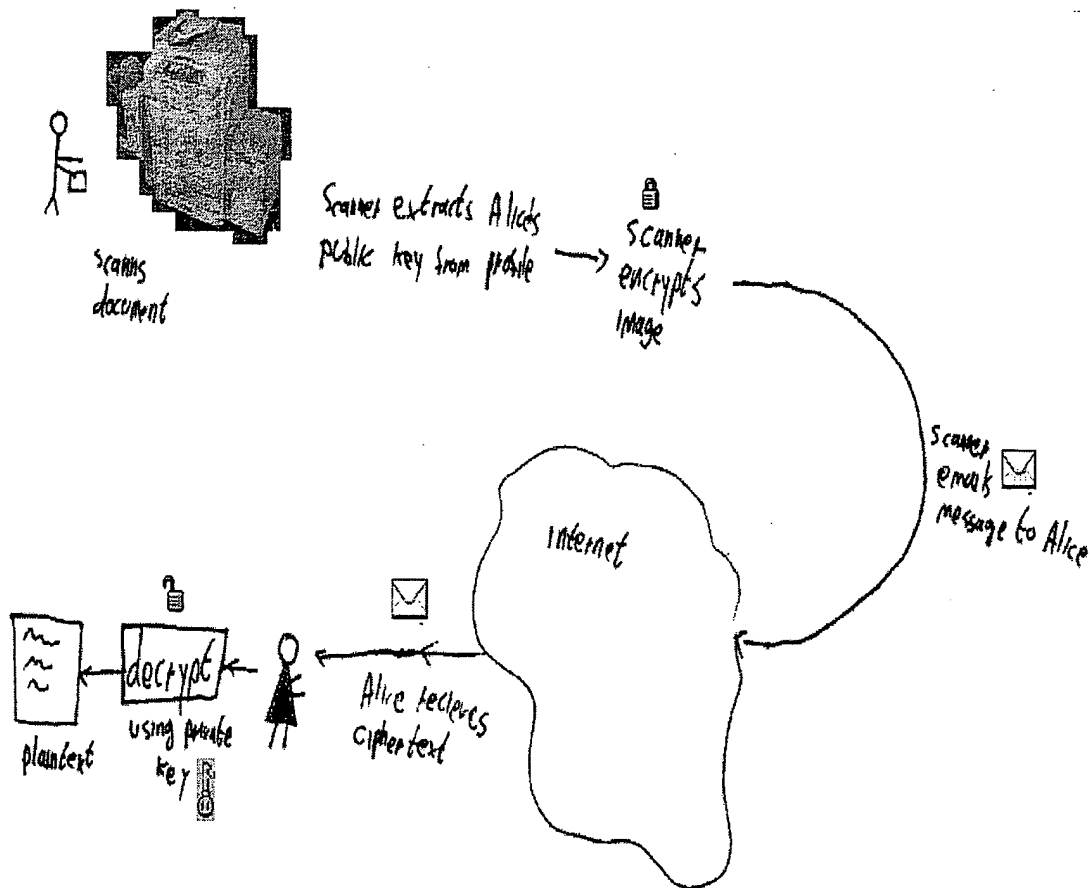 scanns
document
Scanner extracts Alice's
public key from profile
scanner
encrypts
image
scanner
emails
message to Alice
internet
Alice recieves
ciphertext
decrypt
using private
key
plaintext